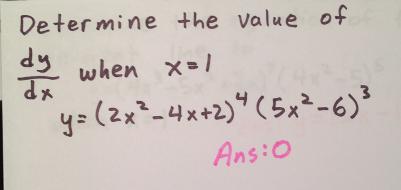 Determine the value of
dy/dx when x=1
y=(2x²-4x+2)⁴(5x²-6)³
Ans:0